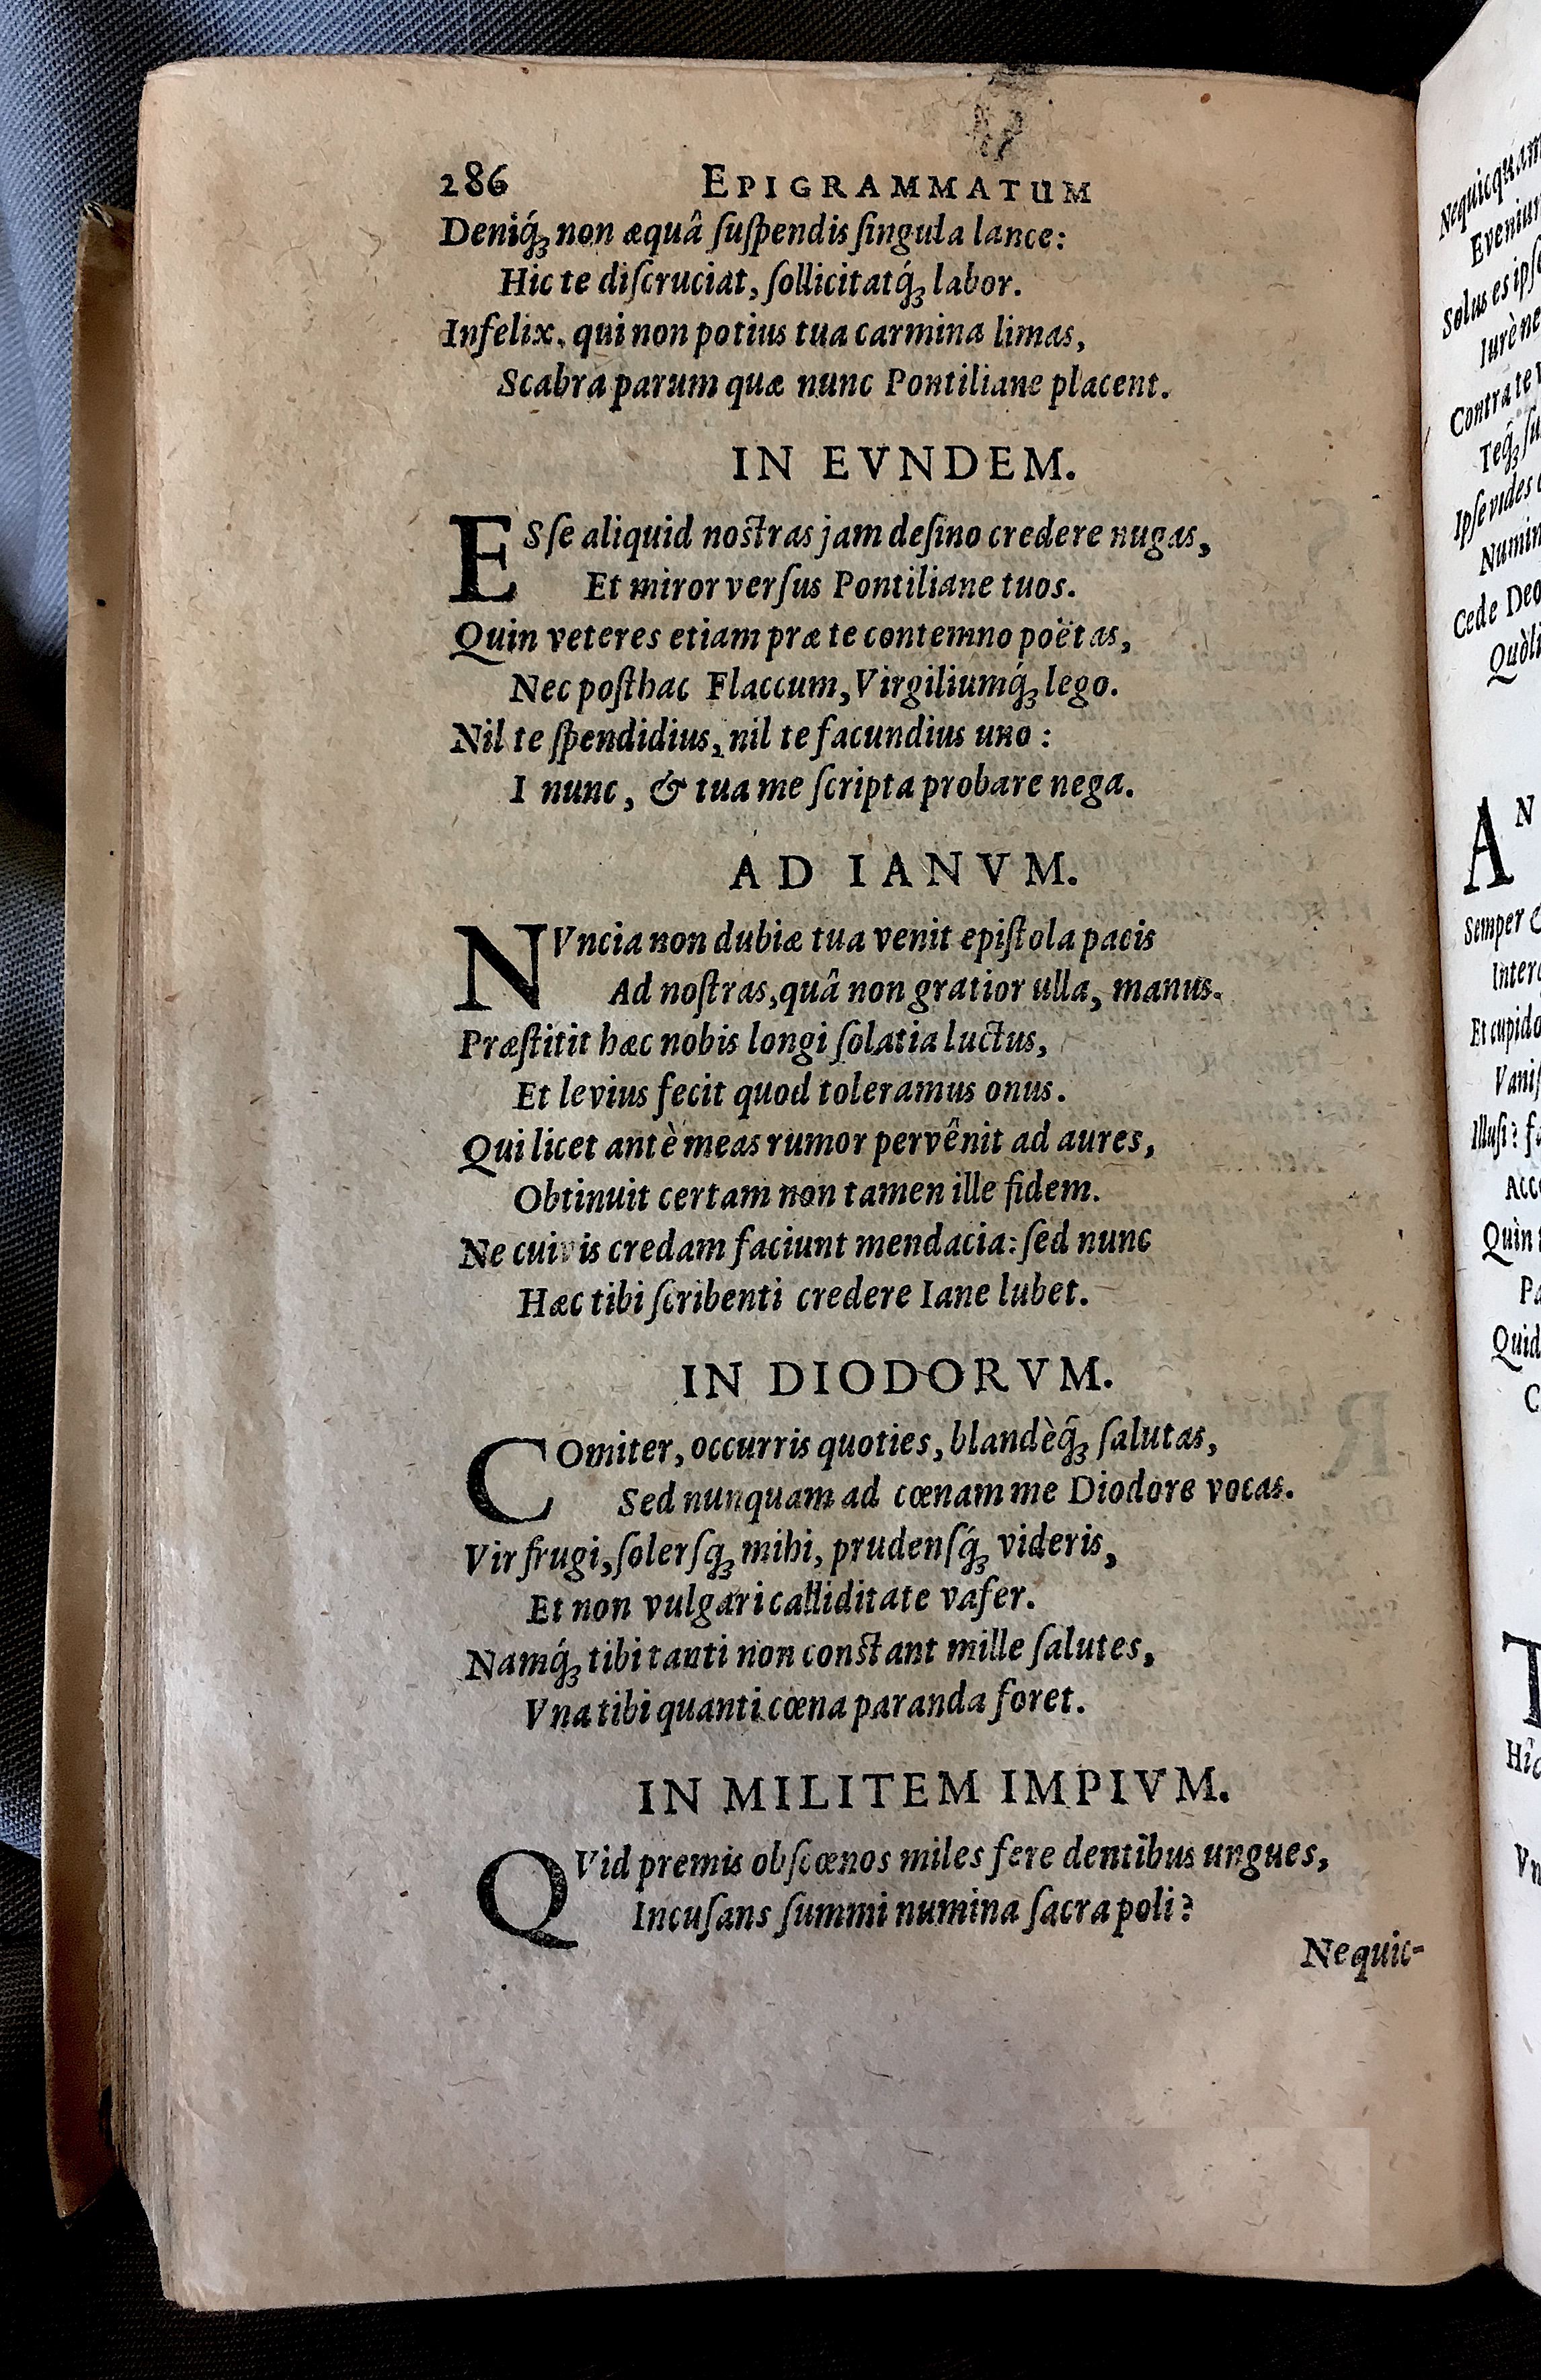 286 EPIGRAMMATUM
Deniq́ꝫ non æquâ ſuſpendis ſingula lance:
Hic te diſcruciat, ſollicitatq́ꝫ labor.
Infelix, qui non potius tua carmina limas,
Scabra parum quæ nunc Pontiliane placent.
IN EVNDEM.
ESſe aliquid noſtras jam deſino credere nugas,
Et miror verſus Pontiliane tuos.
Quin veteres etiam præ te contemno poëtas,
Nec poſthac Flaccum, Virgiliumq́ꝫ lego.
Nil te ſpendidius, nil te facundius uno:
I nunc, & tua me ſcripta probare nega.
AD IANVM.
NVncia non dubiæ tua venit epiſtola pacis
Ad noſtras, quâ non gratior ulla, manus.
Præſtitit hæc nobis longi ſolatia luctus,
Et levius fecit quod toleramus onus.
Qui licet antè meas rumor pervênit ad aures,
Obtinuit certam non tamen ille fidem.
Ne cuivis credam faciunt mendacia: ſed nunc
Hæc tibi ſcribenti credere Iane lubet.
IN DIODORVM.
COmiter, occurris quoties, blandèq́ꝫ ſalutas,
Sed nunquam ad cœnam me Diodore vocas.
Vir frugi, ſolerſq́ꝫ mihi, prudenſq́ꝫ videris,
Et non vulgari calliditate vafer.
Namq́ꝫ tibi tanti non conſtant mille ſalutes,
Vna tibi quanti cœna paranda foret.
IN MILITEM IMPIVM.
QVid premis obſcœnos miles fere dentibus ungues,
Incuſans ſummi numina ſacra poli?
Nequic-
Nequicquam
Solus es
Contra te
Ipſe vides
Numin
Cede Deo
AN
Semper
Et cupido
Quid